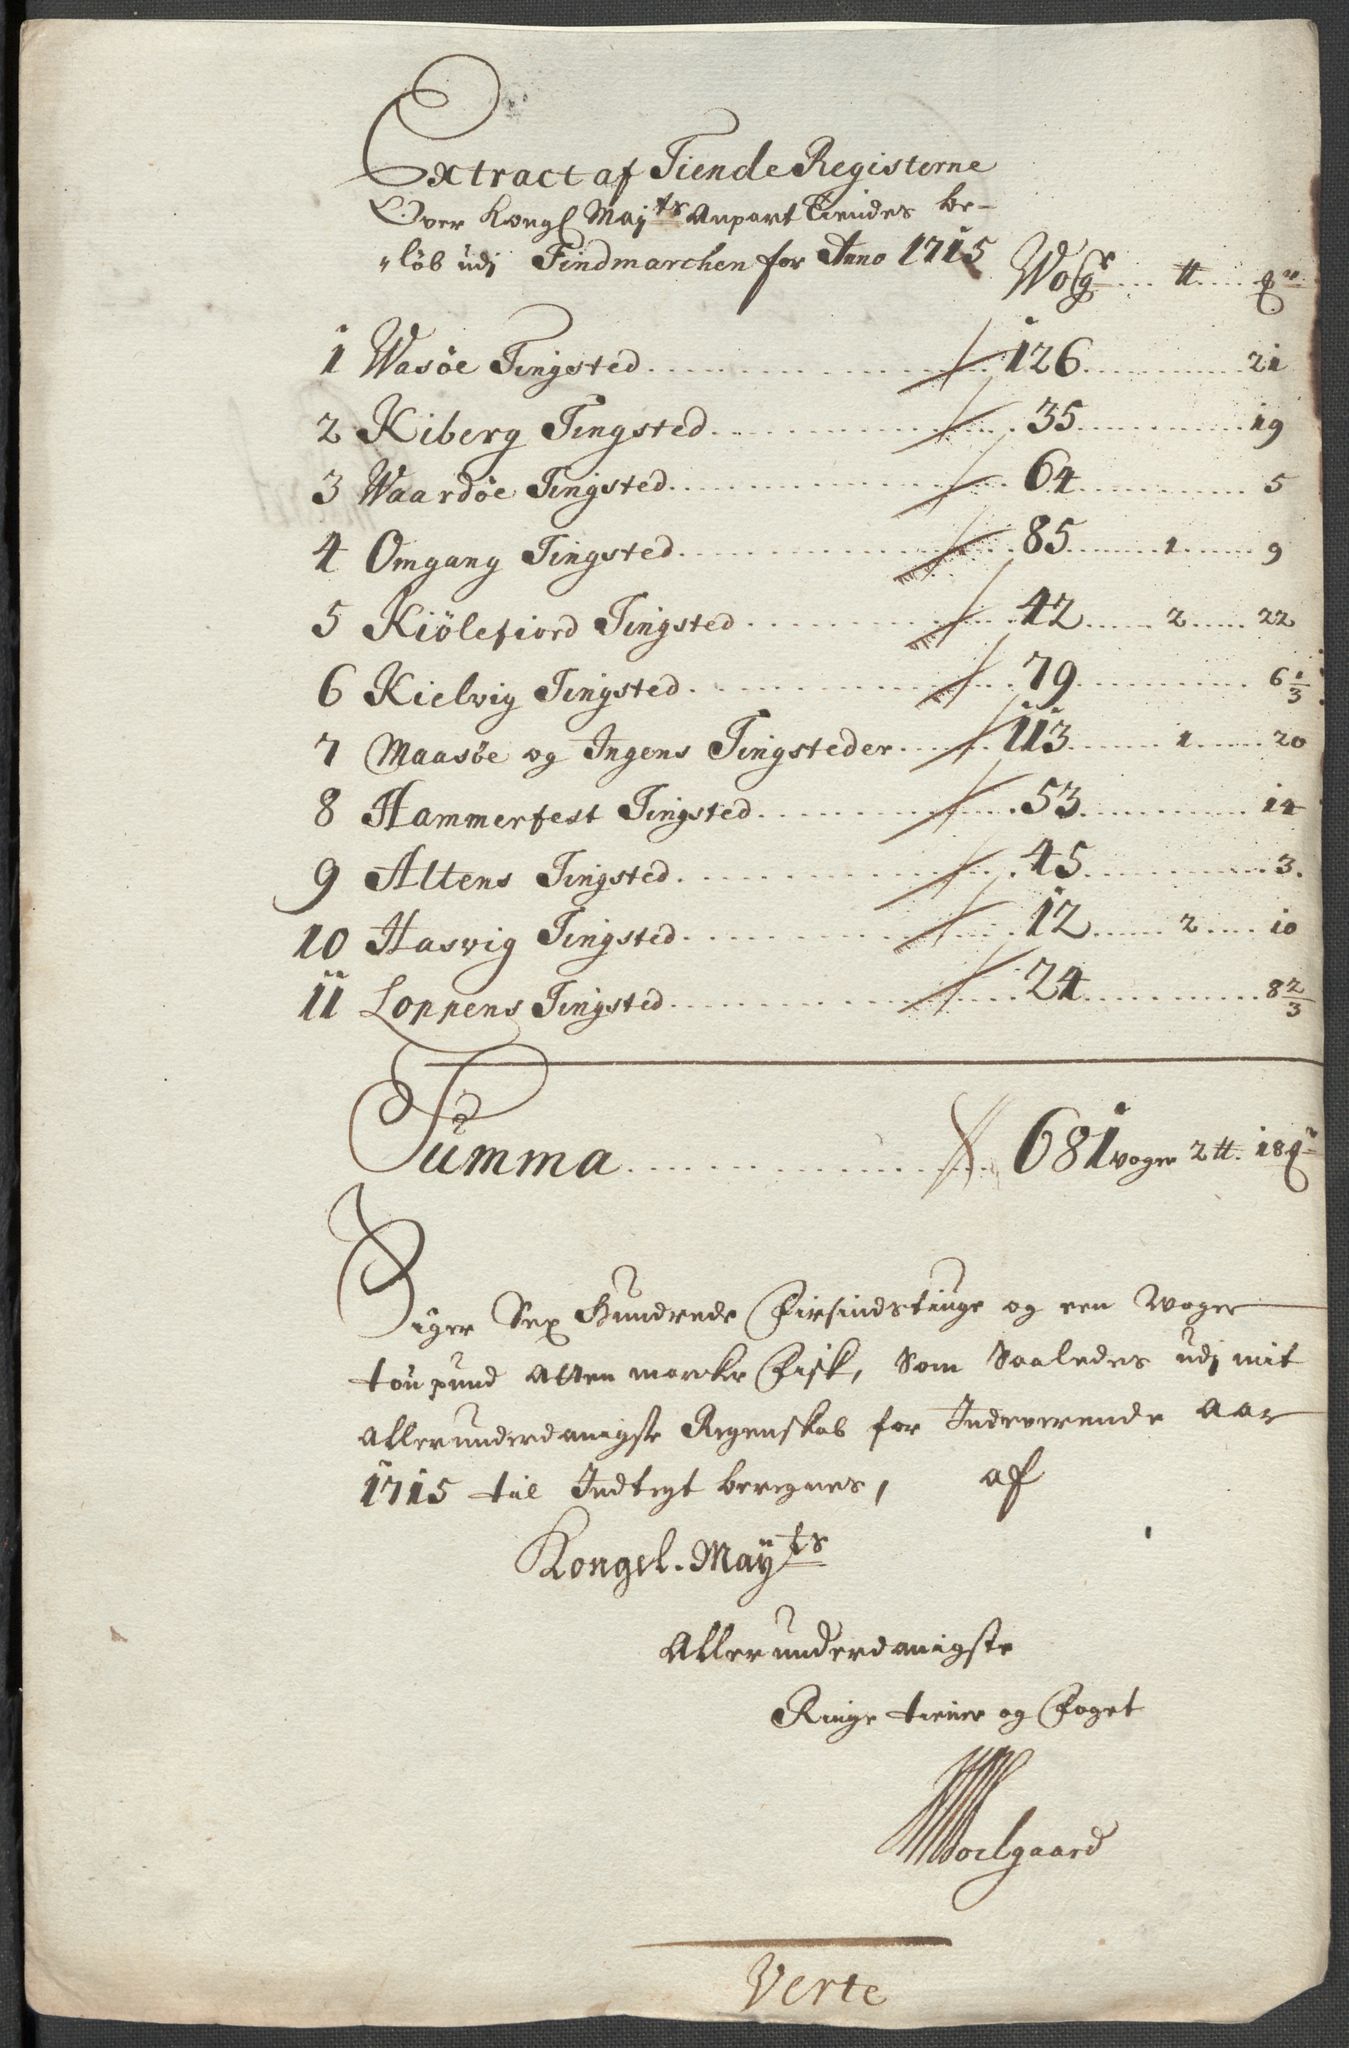 Extract af Tiende Registerne
Over Kongl Mayts Anpart Tiendes be-
„löb udj Findmarchen for Anno 1715
Wogr ..... ℔ ..... 
1 Wasöe Tingsted ..... 126 ..... 21
2 Kiberg Tingsted ..... 35 ..... 19
3 Waardöe Tingsted ..... 64 ..... 5
4 Omgang Tingsted ..... 85 ..... 1 ..... 9
5 Kiölefiord Tingsted ..... 42 ..... 2 ..... 22
6 Kielvig Tingsted ..... 79 ..... 6 1/3
7 Maasöe og Ingens Tingsteder ..... 113 ..... 1 ..... 20
8 Hammerfest Tingsted ..... 53 ..... 14
9 Altens Tingsted ..... 45 ..... 3.
10 Hasvig Tingsted ..... 12 ..... 2 ..... 10
11 Loppens Tingsted ..... 24 ..... 8 2/3
Summa ..... 681 voger 2 ℔. 18
Siger Sex Hundrede Firsindstiuge og een Woger
tou pund Atten marcker Fisk, Som Saaledes udj mit
Allerunderdanigste Regenskab for Indeverende Aar
1715 til Indtegt beregnes, af
Kongel. Mayts
Allerunderdanigste
Ringe tiener og Foget
Soelgaard
Verte